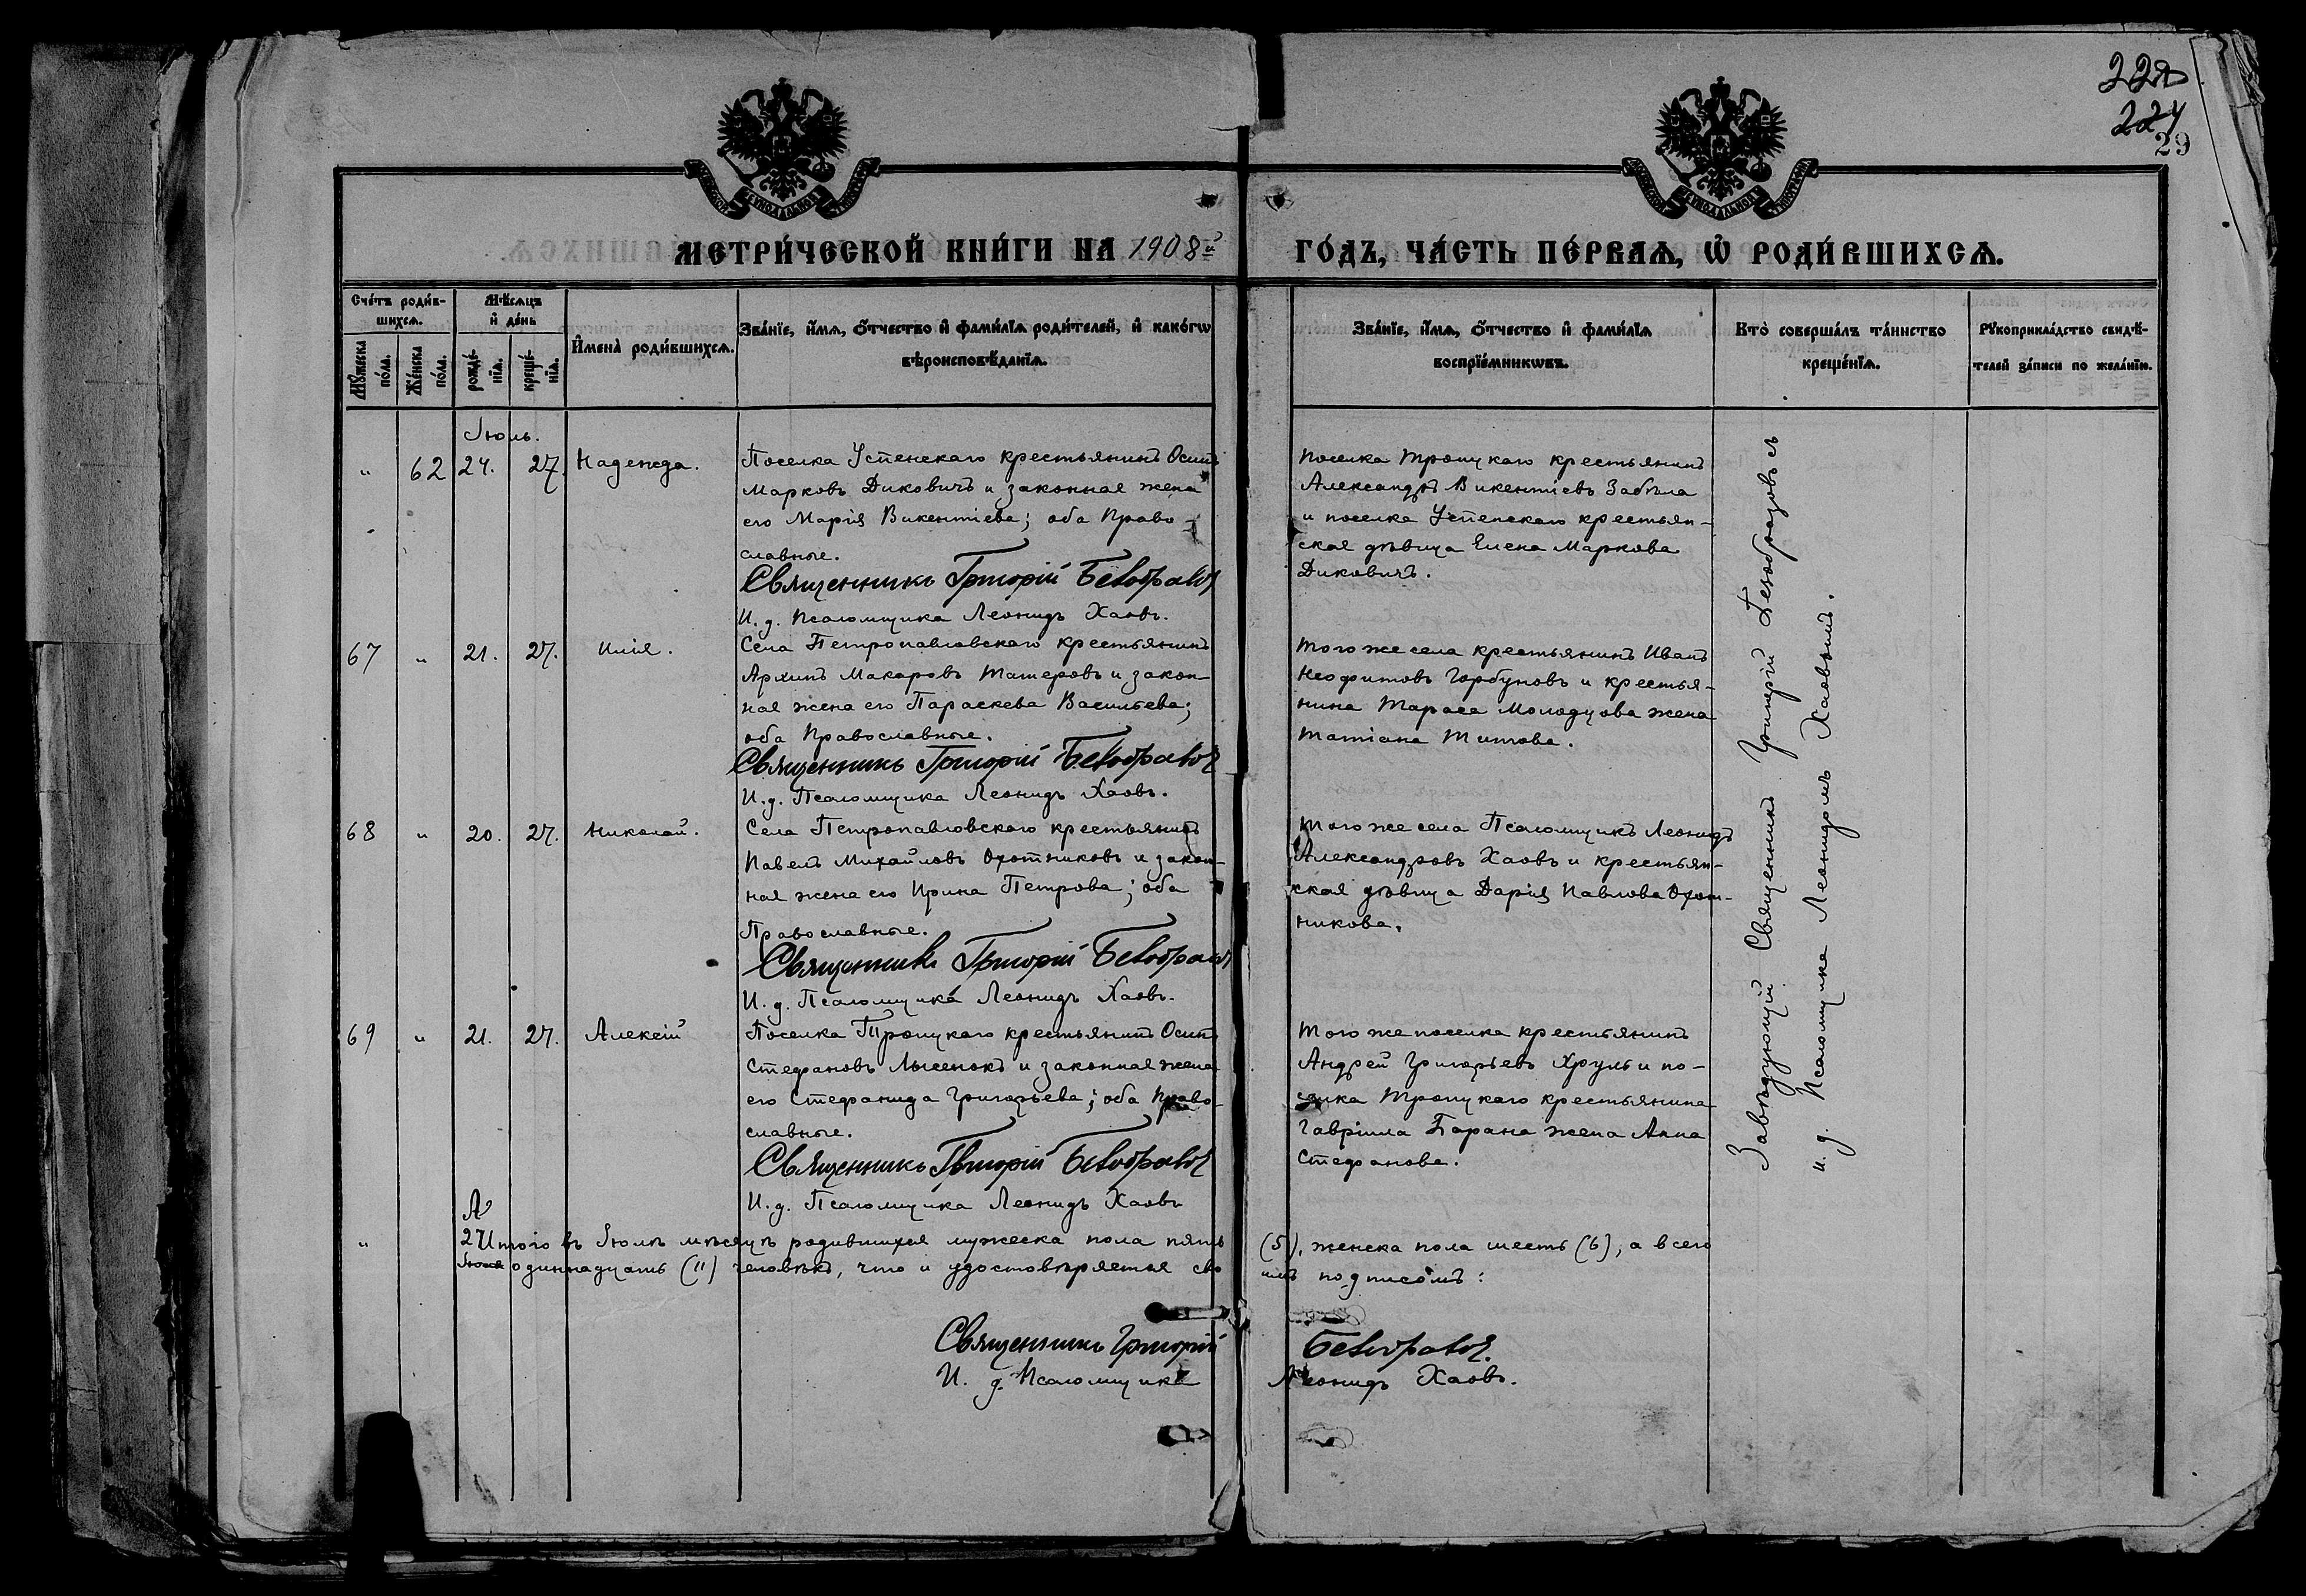 224
29
МЕТРИ́ЧЕСКОЙ КНИ́ГИ НА 1908й
ГО́ДЪ, ЧА́СТЬ ПЕ́РВАѦ, Ѡ҆ РОДИ́ВШИХСѦ.
Сче́тъ роди́в-
шихсѧ.
Мѣ́сѧцъ
и҆ де́нь
Мꙋ́жеска
по́ла.
Же́нска
по́ла.
рожде́-
нїѧ.
креще́-
нїѧ.
И҆мена̀ роди́вшихсѧ.
Зва́нїе, и҆́мѧ, ѻ҆́тчество и҆ фами́лїѧ роди́телей, и҆ како́гѡ
вѣроисповѣ́данїѧ.
Зва́нїе, и҆́мѧ, ѻ҆́тчество и҆ фами́лїѧ
воспрїе́мникѡвъ.
Кто̀ соверша́лъ та́инство
креще́нїѧ.
Рꙋкоприкла́дство свидѣ́-
телей за́писи по жела́нїю.
Іюль.
" 62 24. 27. Надежда.
Поселка Успенскаго крестьянинъ Осипъ
Марковъ Диковичъ и законная жена
его Марія Викентіева; оба Право-
славные.
Священникъ Григорій Безобразовъ
И. д. Псаломщика Леонидъ Хаовъ.
Поселка Троицкаго крестьянинъ
Александръ Викентіевъ Забѣла
и поселка Успенскаго крестьян-
ская дѣвица Елена Маркова
Диковичъ.
67 " 21. 27. Илія.
Села Петропавловскаго крестьянинъ
Архипъ Макаровъ Татеровъ и закон-
ная жена его Параскева Васильева;
оба Православные.
Священникъ Григорій Безобразовъ
И. д. Псаломщика Леонидъ Хаовъ.
Того же села крестьянинъ Иванъ
Неофитовъ Горбуновъ и крестья-
нина Тараса Молодцова жена
Татіана Титова.
68 " 20. 27. Николай.
Села Петропавловскаго крестьянинъ
Павелъ Михайловъ Охотниковъ и закон-
ная жена его Ирина Петрова; оба
Православные.
Священникъ Григорій Безобразовъ
И. д. Псаломщика Леонидъ Хаовъ.
Того же села Псаломщикъ Леонидъ
Александровъ Хаовъ и крестьян-
ская дѣвица Дарія Павлова Охот-
никова.
69 " 21. 27. Алексій
Поселка Троицкаго крестьянинъ Осипъ
Стефановъ Лысенокъ и законная жена
его Стефанида Григорьева; оба Право-
славные.
Священникъ Григорій Безобразовъ
И. д. Псаломщика Леонидъ Хаовъ
Того же поселка крестьянинъ
Андрей Григорьевъ Хруль и по-
селка Троицкаго крестьянина
Гавріила Барана жена Анна
Стефанова.
Завѣдующій Священникъ Григорій Безобразовъ съ
и. д. Псаломщика Леонидомъ Хаовымъ.
" Итого въ Іюлѣ мѣсяцѣ родившихся мужеска пола пять (5), женска пола шесть (6), а всего
одиннадцать (11) человѣкъ, что и удостовѣряется своимъ подписомъ:
Священникъ Григорій Безобразовъ.
И. д. Псаломщика Леонидъ Хаовъ.